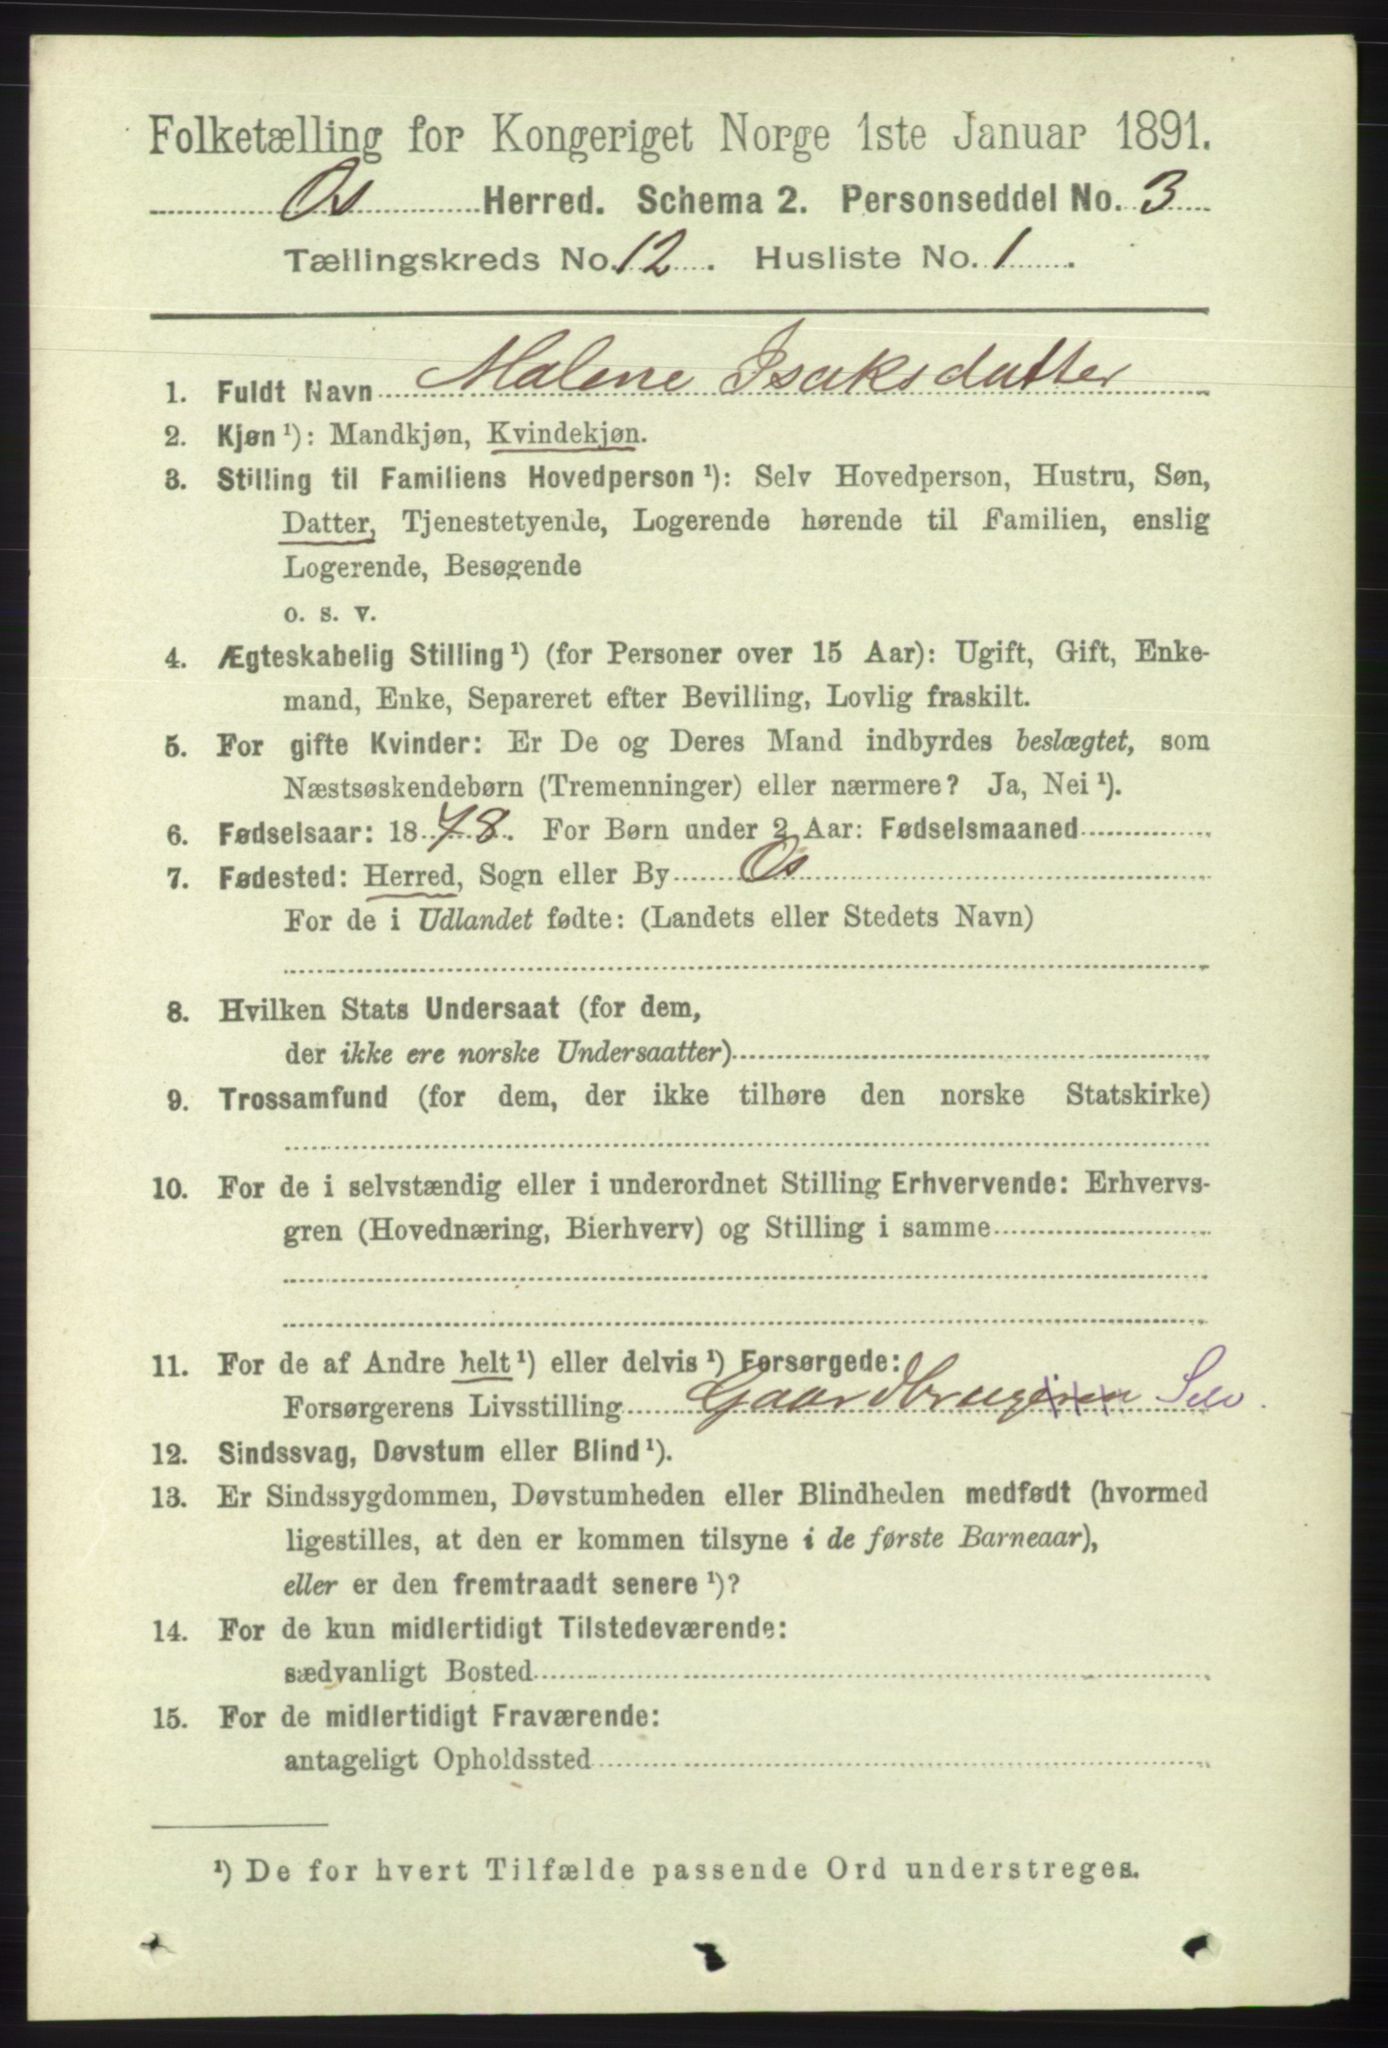 Folketælling for Kongeriget Norge 1ste Januar 1891.
Os Herred. Schema 2. Personseddel No. 3
Tællingskreds No. 12. Husliste No. 1.
1. Fuldt Navn Malene Isaksdatter
2. Kjøn ¹): Mandkjøn, Kvindekjøn.
3. Stilling til Familiens Hovedperson ¹): Selv Hovedperson, Hustru, Søn,
Datter, Tjenestetyende, Logerende hørende til Familien, enslig
Logerende, Besøgende
o. s. v.
4. Ægteskabelig Stilling ¹) (for Personer over 15 Aar): Ugift, Gift, Enke-
mand, Enke, Separeret efter Bevilling, Lovlig fraskilt.
5. For gifte Kvinder: Er De og Deres Mand indbyrdes beslægtet, som
Næstsøskendebørn (Tremenninger) eller nærmere? Ja, Nei ¹).
6. Fødselsaar: 1878. For Børn under 2 Aar: Fødselsmaaned
7. Fødested: Herred, Sogn eller By Os
For de i Udlandet fødte: (Landets eller Stedets Navn)
8. Hvilken Stats Undersaat (for dem,
der ikke ere norske Undersaatter)
9. Trossamfund (for dem, der ikke tilhøre den norske Statskirke)
10. For de i selvstændig eller i underordnet Stilling Erhvervende: Erhvervs-
gren (Hovednæring, Bierhverv) og Stilling i samme
11. For de af Andre helt ¹) eller delvis ¹) Forsørgede:
Forsørgerens Livsstilling Gaardbrugeren Selv.
12. Sindssvag, Døvstum eller Blind ¹).
13. Er Sindssygdommen, Døvstumheden eller Blindheden medfødt (hvormed
ligestilles, at den er kommen tilsyne i de første Barneaar),
eller er den fremtraadt senere ¹)?
14. For de kun midlertidigt Tilstedeværende:
sædvanligt Bosted
15. For de midlertidigt Fraværende:
antageligt Opholdssted
¹) De for hvert Tilfælde passende Ord understreges.